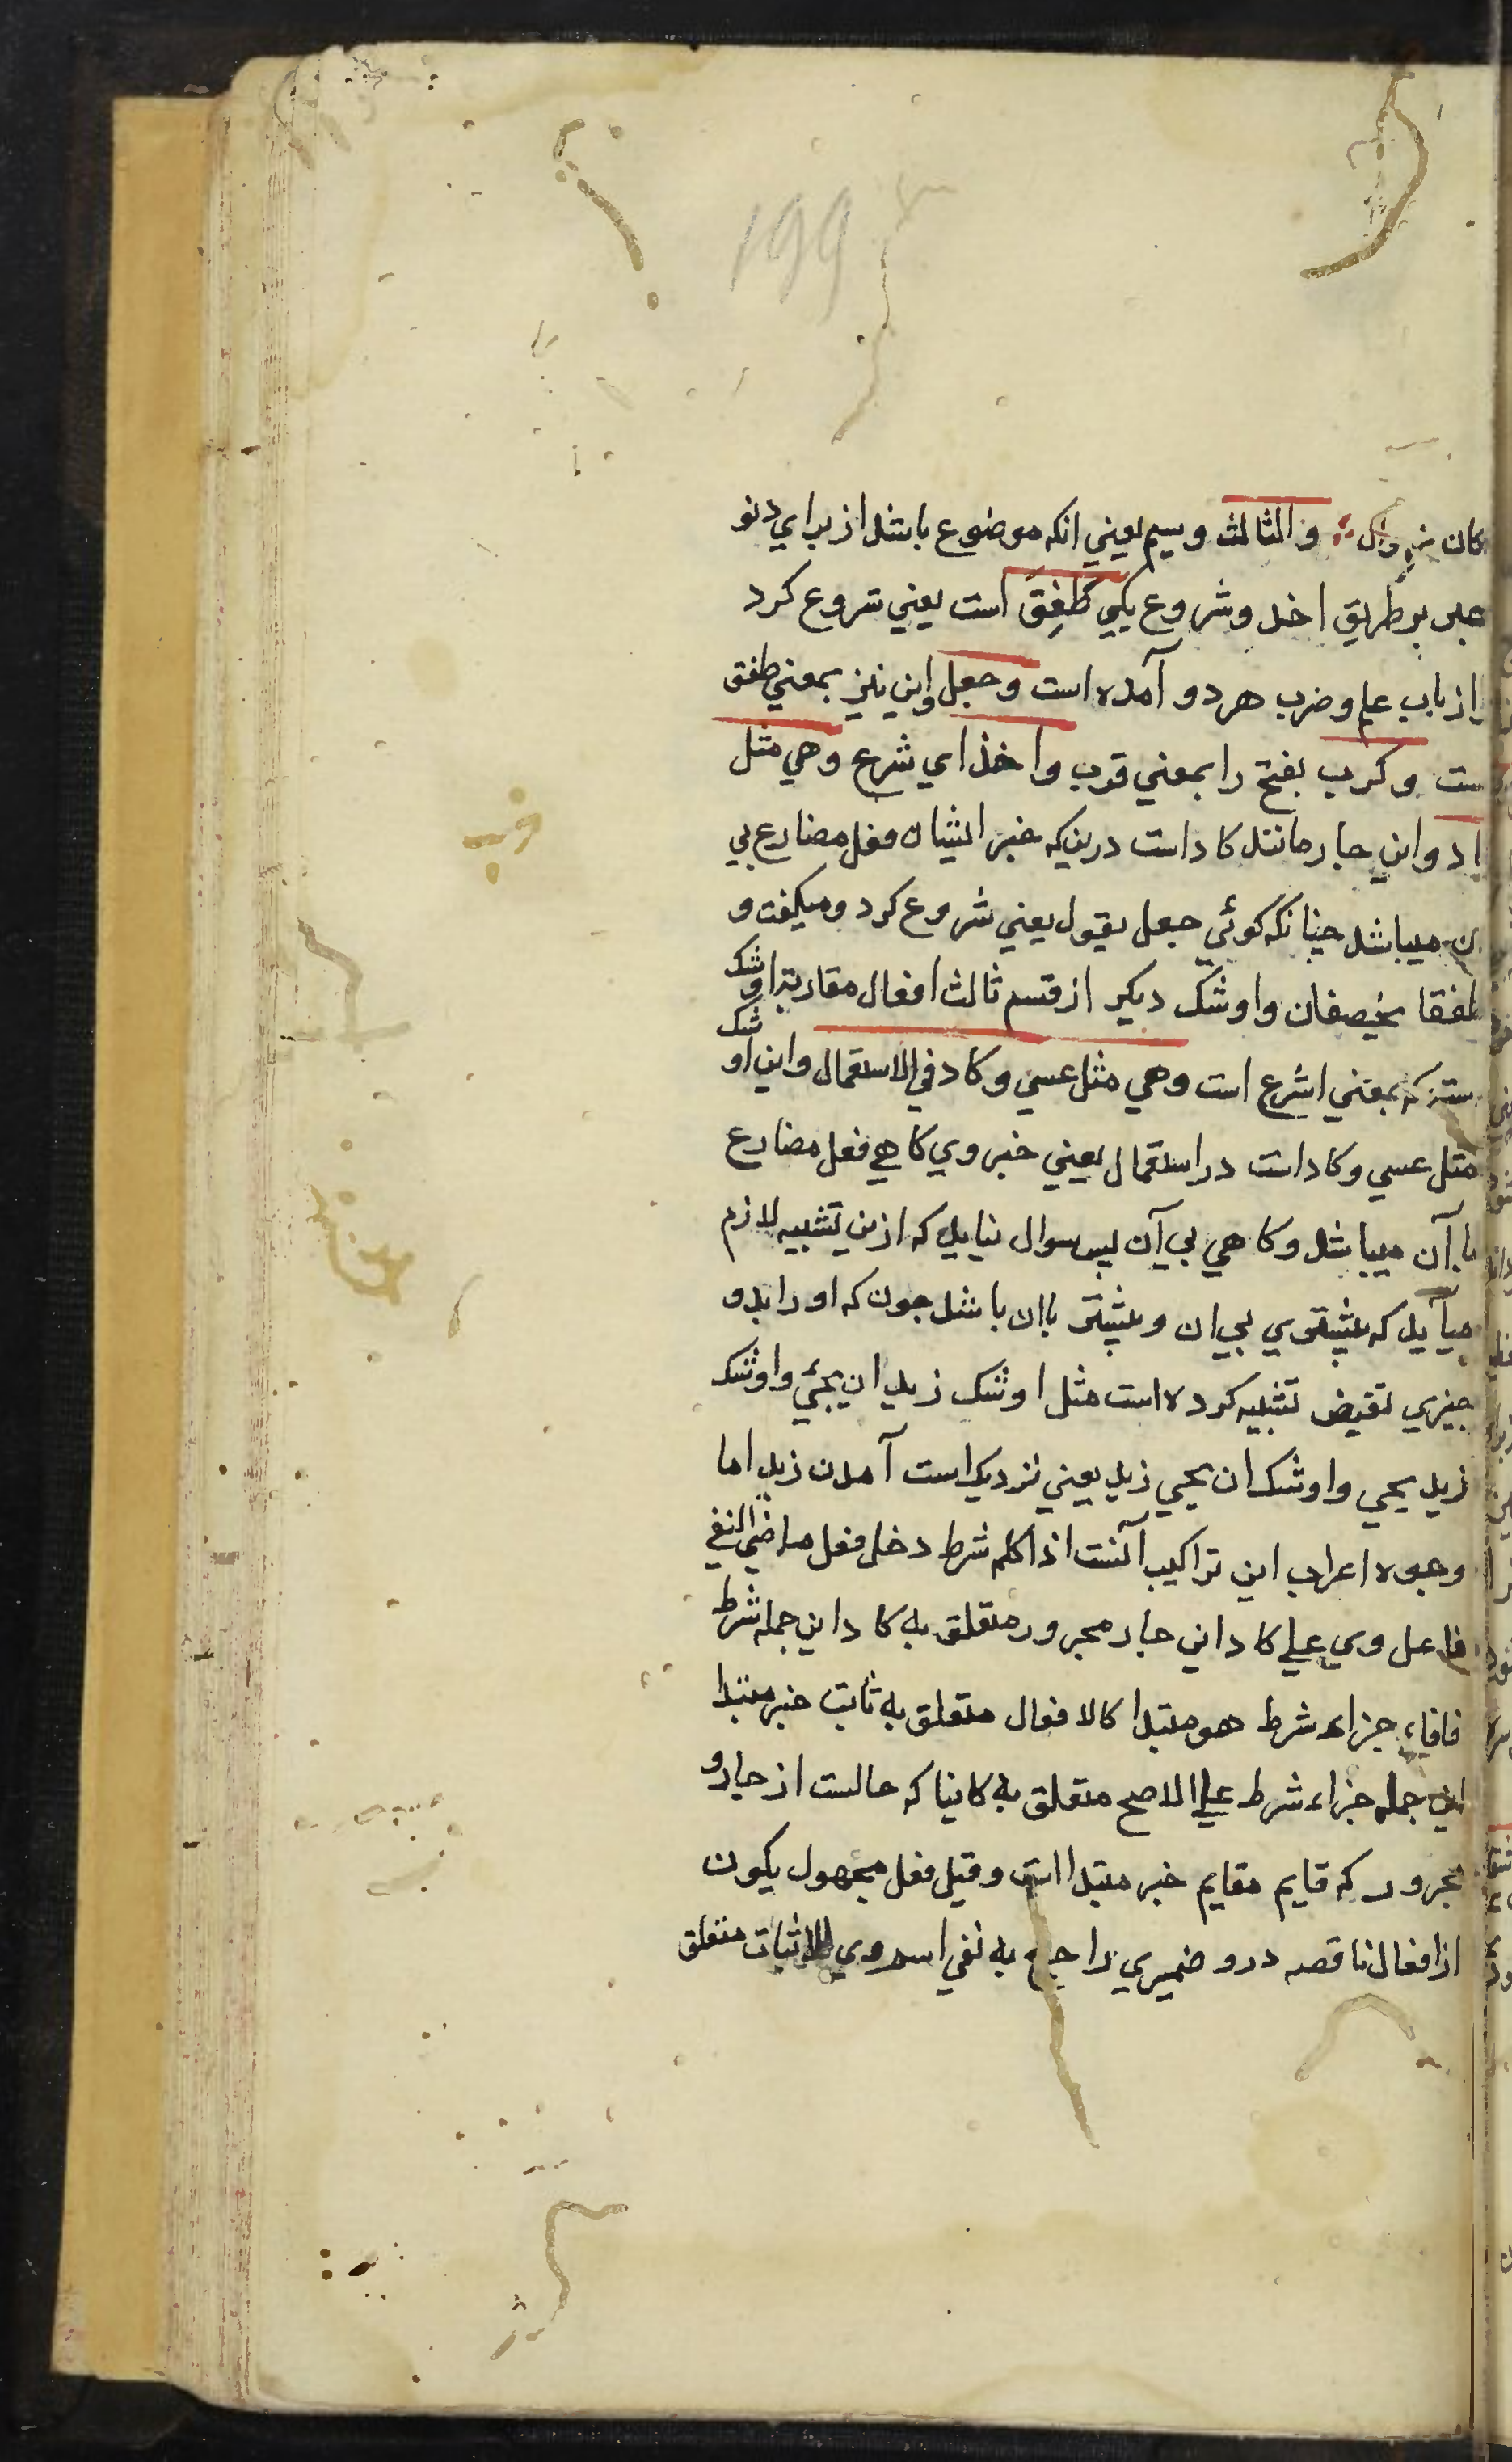 ۱۹۹
كان والثالث وسيم يعني انكه موضوع باشد از براي دنو
بر طريق اخد و شروع يكي طَفِقَ است يعني شروع كرد
از باب علم و ضرب هر دو آمده است وجعل واين نيز بمعني طفق
ست وكرب بفتح را بمعني قرب واخذ اي شرع وهي مثل
اد واين چار مانند كاد است درينكه خبر ايشان فعل مضارع بي
ن ميباشد چنانكه كوئي جعل يقول يعني شروع كرد و ميكفت و
طفقا يخصفان واوشك ديكر از قسم ثالث افعال مقاربه اوشك
ستكه بمعني اشرع است وهي مثل عسي وكاد في الاستعمال واين اوشك
مثل عسي وكاد است در استعمال يعني خبر وي كاهي فعل مضارع
با آن ميباشد وكاهي بي آن پس سوال نيايد كه ازين تشبيه لازم
ميآيد كه بيشتري بي ان و بيشتر باان باشد چون كه او را بدو
چيزي نقيض تشبيه كرده است مثل اوشك زيد ان يجئ واوشك
زيد يجي واوشك ان يجي زيد يعني نزديك است آمدن زيد اما
وجوه اعراب اين تراكيب آنست اذا كلم شرط دخل فعل ماضي النفي
فاعل وي علي كاد اني جار مجرور متعلق به كاد اين جمله شرط
فافاء جزاء شرط هو مبتدا كالافعال متعلق به ثابت خبر مبتدا
اين جمله جزاء شرط علي الاصح متعلق به كاينا كه حالست از جارو
مجرور كه قايم مقايم خبر مبتدا است وقيل فعل مجهول يكون
از افعال ناقصه درو ضميري راجع به نفي اسم وي للاثبات متعلق